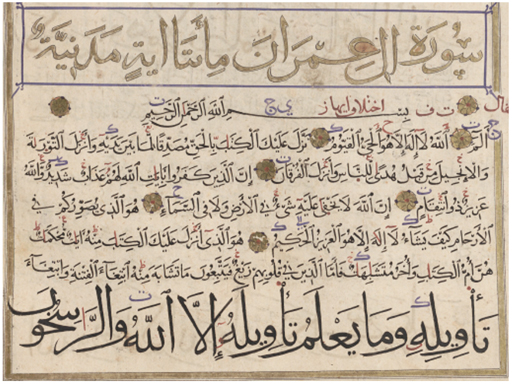 سُورَةُ اٰلِ عِمْرَانَ مِائَتَا اٰيَةٍ مَدَنِيَّةٌ
بِسْمِ اللهِ الرَّحْمٰنِ الرَّحِيمِ
الٓمٓ اللهُ لَا إِلٰهَ إِلَّا هُوَ الْحَيُّ الْقَيُّومُ نَزَّلَ عَلَيْكَ الْكِتٰبَ بِالْحَقِّ مُصَدِّقًا لِمَا بَيْنَ يَدَيْهِ وَأَنْزَلَ التَّوْرٰيةَ
وَالْإِنْجِيلَ مِنْ قَبْلُ هُدًى لِلنَّاسِ وَأَنْزَلَ الْفُرْقَانَ إِنَّ الَّذِينَ كَفَرُوا بِاٰيَاتِ اللهِ لَهُمْ عَذَابٌ شَدِيدٌ وَاللهُ
عَزِيزٌ ذُو انْتِقَامٍ إِنَّ اللهَ لَا يَخْفَى عَلَيْهِ شَيْءٌ فِي الْأَرْضِ وَلَا فِي السَّمَاءِ هُوَ الَّذِي يُصَوِّرُكُمْ فِي
الْأَرْحَامِ كَيْفَ يَشَاءُ لَا إِلٰهَ إِلَّا هُوَ الْعَزِيزُ الْحَكِيمُ هُوَ الَّذِي أَنْزَلَ عَلَيْكَ الْكِتٰبَ مِنْهُ اٰيَاتٌ مُحْكَمَاتٌ
هُنَّ أُمُّ الْكِتٰبِ وَأُخَرُ مُتَشَابِهَاتٌ فَأَمَّا الَّذِينَ فِي قُلُوبِهِمْ زَيْغٌ فَيَتَّبِعُونَ مَا تَشَابَهَ مِنْهُ ابْتِغَاءَ الْفِتْنَةِ وَابْتِغَاءَ
تَأْوِيلِهِ وَمَا يَعْلَمُ تَأْوِيلَهُ إِلَّا اللهُ وَالرَّاسِخُونَ